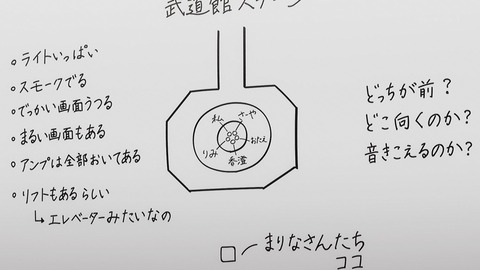 武道館ステージ
ライトいっぱい
スモークでる
でっかい画面うつる
まるい画面もある
アンプは全部おいてある
リフトもあるらしい
↳エレベーターみたいなの
さーや
おたえ
香澄
りみ
どっちが前?
どこ向くのか?
音きこえるのか?
まりなさんたち
ココ